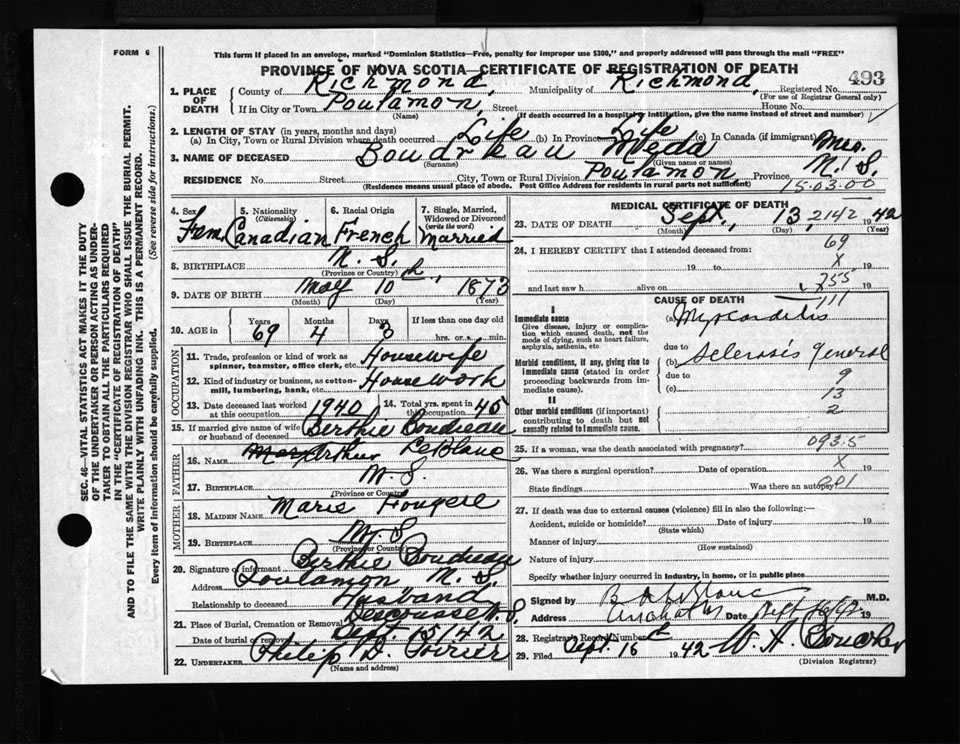 FORM 6
This form if placed in an envelope, marked "Dominion Statistics—Free, penalty for improper use $300," and properly addressed will pass through the mail "FREE"
PROVINCE OF NOVA SCOTIA—CERTIFICATE OF REGISTRATION OF DEATH
493
1. PLACE OF DEATH County of Richmond, Municipality of Richmond, Registered No.
(For use of Registrar General only)
If in City or Town Poulamon, Street House No.
(Name) (If death occurred in a hospital or institution, give the name instead of street and number)
2. LENGTH OF STAY (in years, months and days)
(a) In City, Town or Rural Division where death occurred Life (b) In Province Life (c) In Canada (if immigrant)
3. NAME OF DECEASED Boudreau Meda Mrs.
(Surname) (Given name or names)
RESIDENCE No. Street City, Town or Rural Division Poulamon, Province N.S.
(Residence means usual place of abode. Post Office Address for residents in rural parts not sufficient)
15.03.00
4. Sex 5. Nationality (Citizenship) 6. Racial Origin 7. Single, Married, Widowed or Divorced (write the word)
Fem Canadian French Married
8. BIRTHPLACE N.S.
(Province or Country)
9. DATE OF BIRTH May 10 1873
(Month) (Day) (Year)
10. AGE in Years Months Days If less than one day old
69 4 3 hrs. or min.
OCCUPATION
11. Trade, profession or kind of work as spinner, teamster, office clerk, etc. Housewife
12. Kind of industry or business, as cotton-mill, lumbering, bank, etc. Housework
13. Date deceased last worked at this occupation 1940 14. Total yrs. spent in this occupation 45
15. If married give name of wife or husband of deceased Berthie Boudreau
FATHER
16. NAME Arthur LeBlanc
17. BIRTHPLACE N.S.
(Province or Country)
MOTHER
18. MAIDEN NAME Marie Hougere
19. BIRTHPLACE N.S
(Province or Country)
20. Signature of informant Berthie Boudreau
Address Poulamon N.S.
Relationship to deceased Husband
21. Place of Burial, Cremation or Removal Descousse N.S.
Date of burial or removal Sept. 15/42
22. UNDERTAKER Philip D. Poirier
(Name and address)
MEDICAL CERTIFICATE OF DEATH
23. DATE OF DEATH Sept., 13, 2142 1942
(Month) (Day) (Year)
24. I HEREBY CERTIFY that I attended deceased from:
69
19 to X 19
and last saw h alive on 19
111
CAUSE OF DEATH
I
Immediate cause
Give disease, injury or complication which caused death, not the mode of dying, such as heart failure, asphyxia, asthenia, etc.
(a) Myocarditis
due to
Morbid conditions, if any, giving rise to immediate cause (stated in order proceeding backwards from immediate cause).
(b) Sclerosis General
due to 9
(c) 13
2
II
Other morbid conditions (if important) contributing to death but not causally related to immediate cause.
25. If a woman, was the death associated with pregnancy? 093.5
26. Was there a surgical operation? Date of operation X 19
State findings Was there an autopsy?
27. If death was due to external causes (violence) fill in also the following:—
Accident, suicide or homicide? Date of injury 19
(State which)
Manner of injury
(How sustained)
Nature of injury
Specify whether injury occurred in industry, in home, or in public place
Signed by M.D.
Address Arichat Date 19
28. Registrar's Record Number
29. Filed Sept. 16 1942
(Division Registrar)
SEC. 46—VITAL STATISTICS ACT MAKES IT THE DUTY
OF THE UNDERTAKER OR PERSON ACTING AS UNDER-
TAKER TO OBTAIN ALL THE PARTICULARS REQUIRED
IN THE "CERTIFICATE OF REGISTRATION OF DEATH"
AND TO FILE THE SAME WITH THE DIVISION REGISTRAR WHO SHALL ISSUE THE BURIAL PERMIT.
WRITE PLAINLY WITH UNFADING INK. THIS IS A PERMANENT RECORD.
Every item of Information should be carefully supplied. (See reverse side for instructions.)